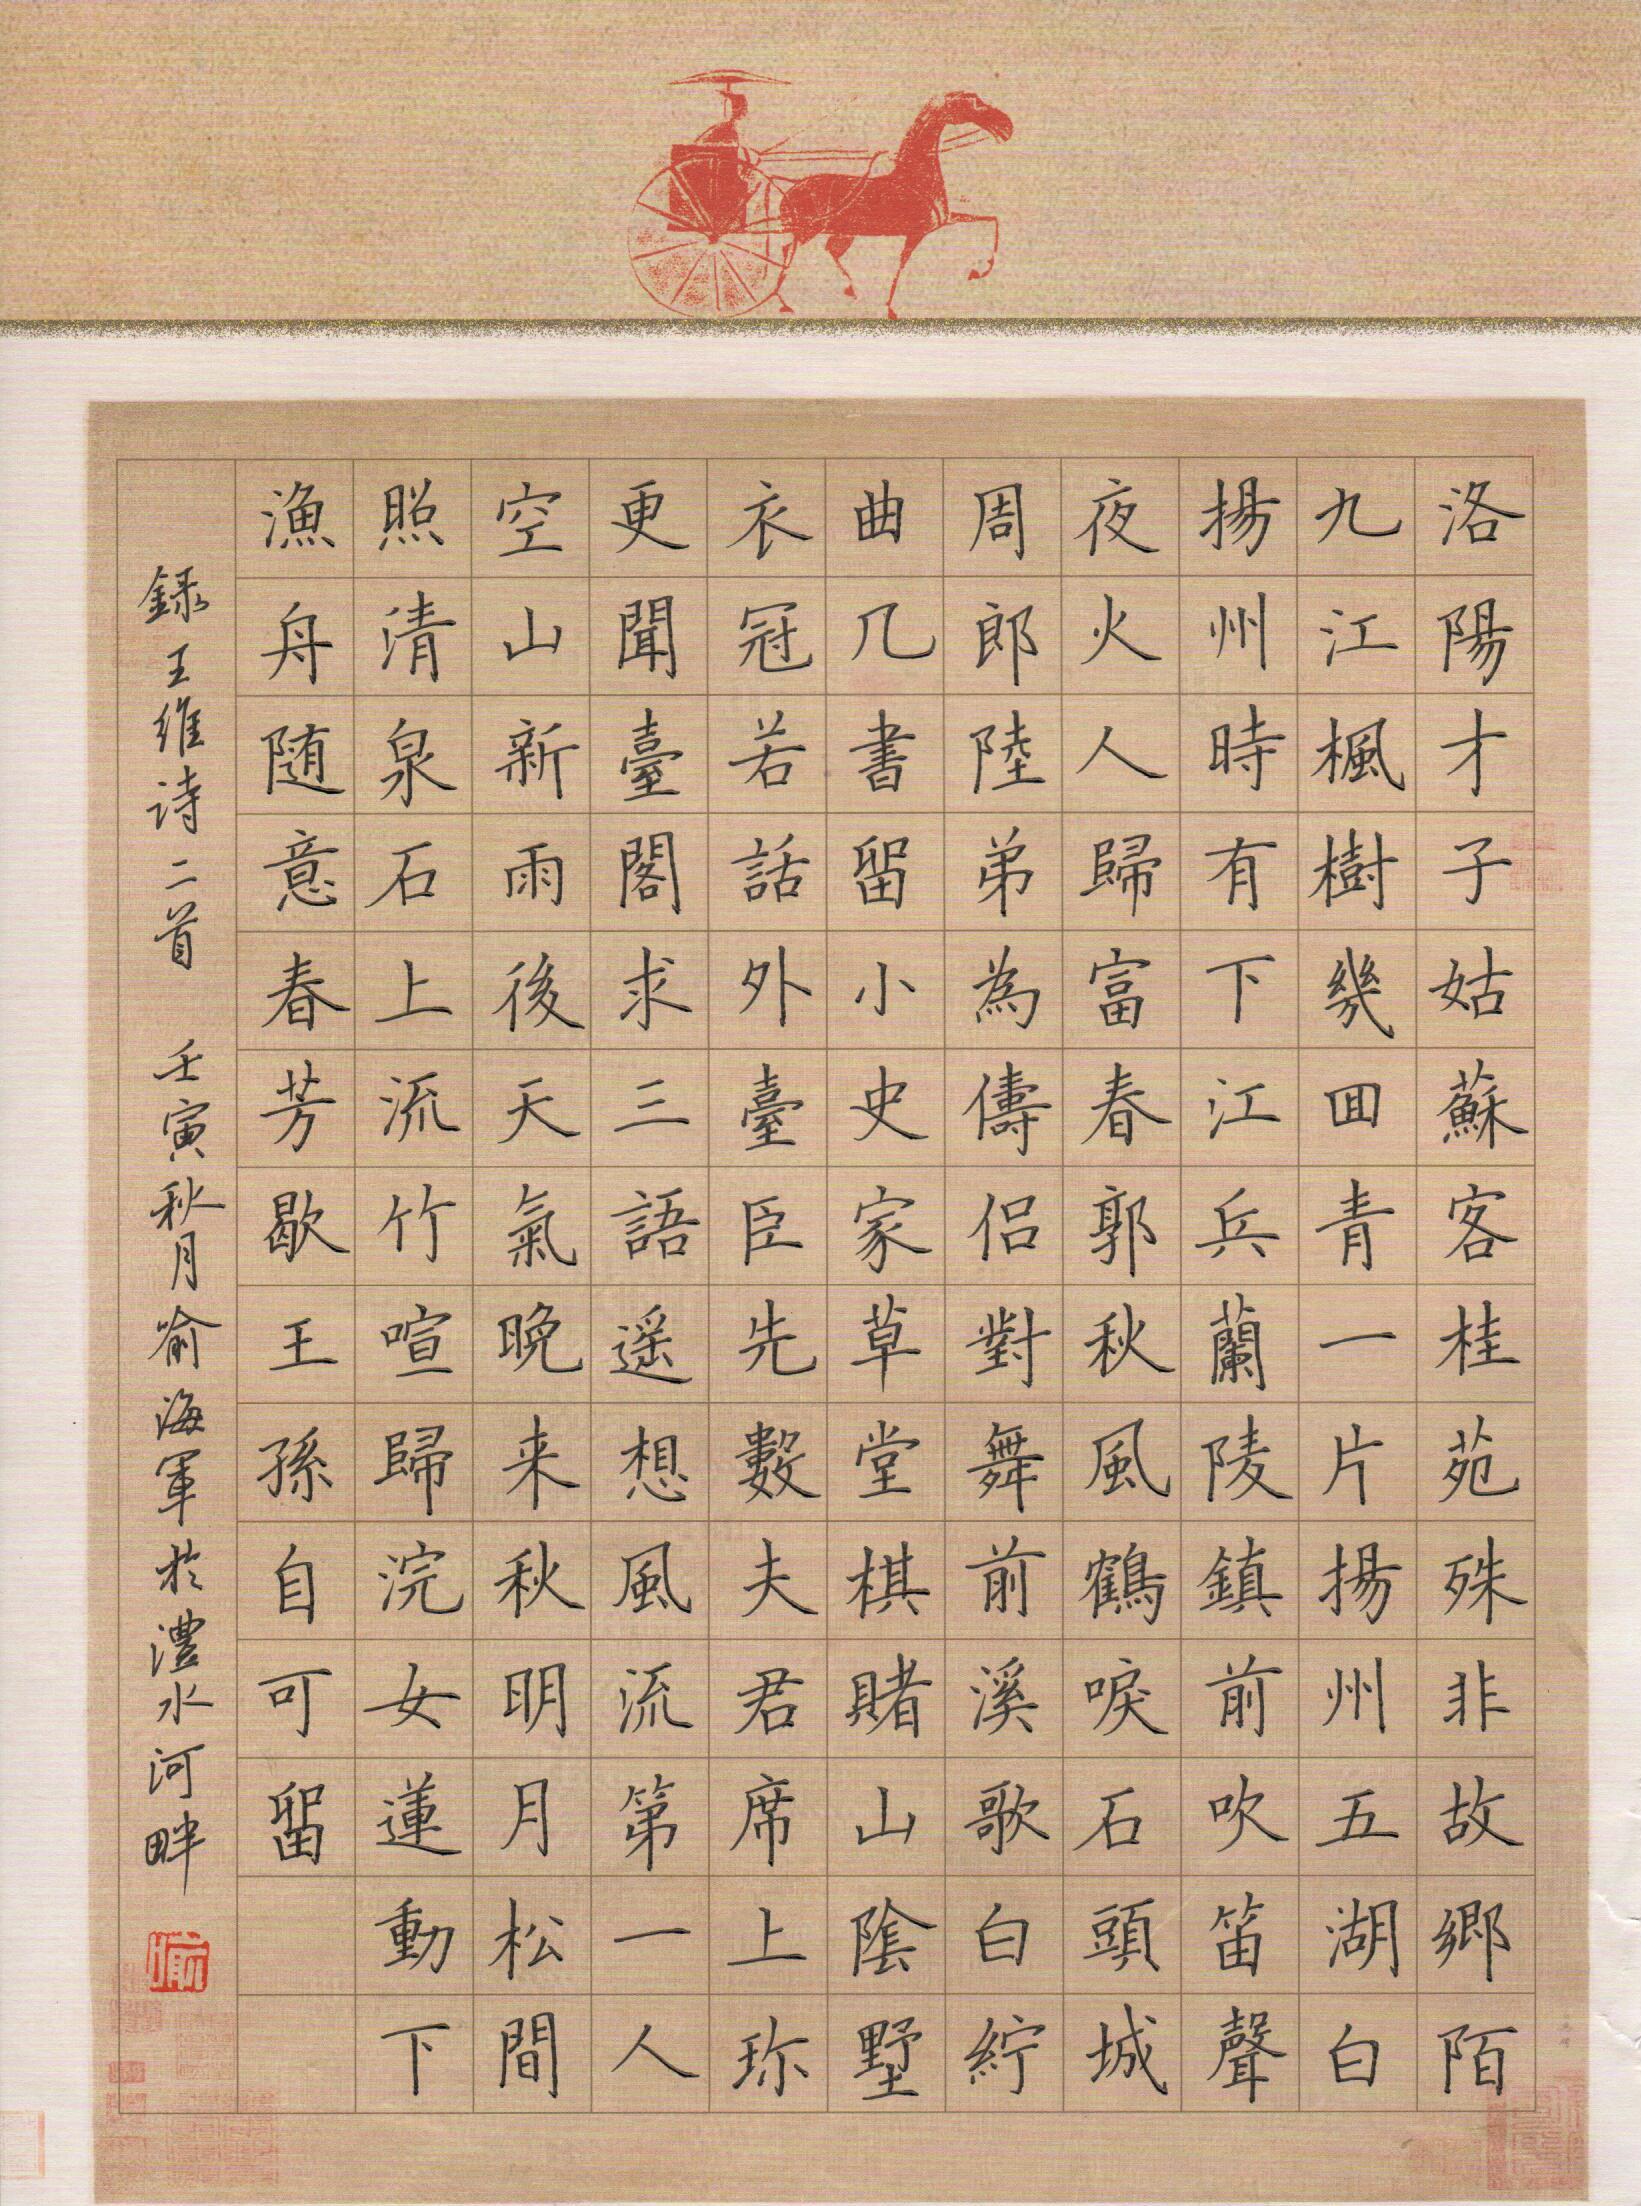 洛陽才子姑蘇客桂苑殊非故鄉陌
九江楓樹幾回青一片揚州五湖白
揚州時有下江兵蘭陵鎮前吹笛聲
夜火人歸富春郭秋風鶴唳石頭城
周郎陸弟為儔侶對舞前溪歌白紵
曲几書留小史家草堂棋賭山陰墅
衣冠若話外臺臣先數夫君席上珎
更聞臺閣求三語遥想風流第一人
空山新雨後天氣晚来秋明月松間
照清泉石上流竹喧歸浣女蓮動下
漁舟随意春芳歇王孫自可留
録王維詩二首 壬寅秋月喻海軍於澧水河畔